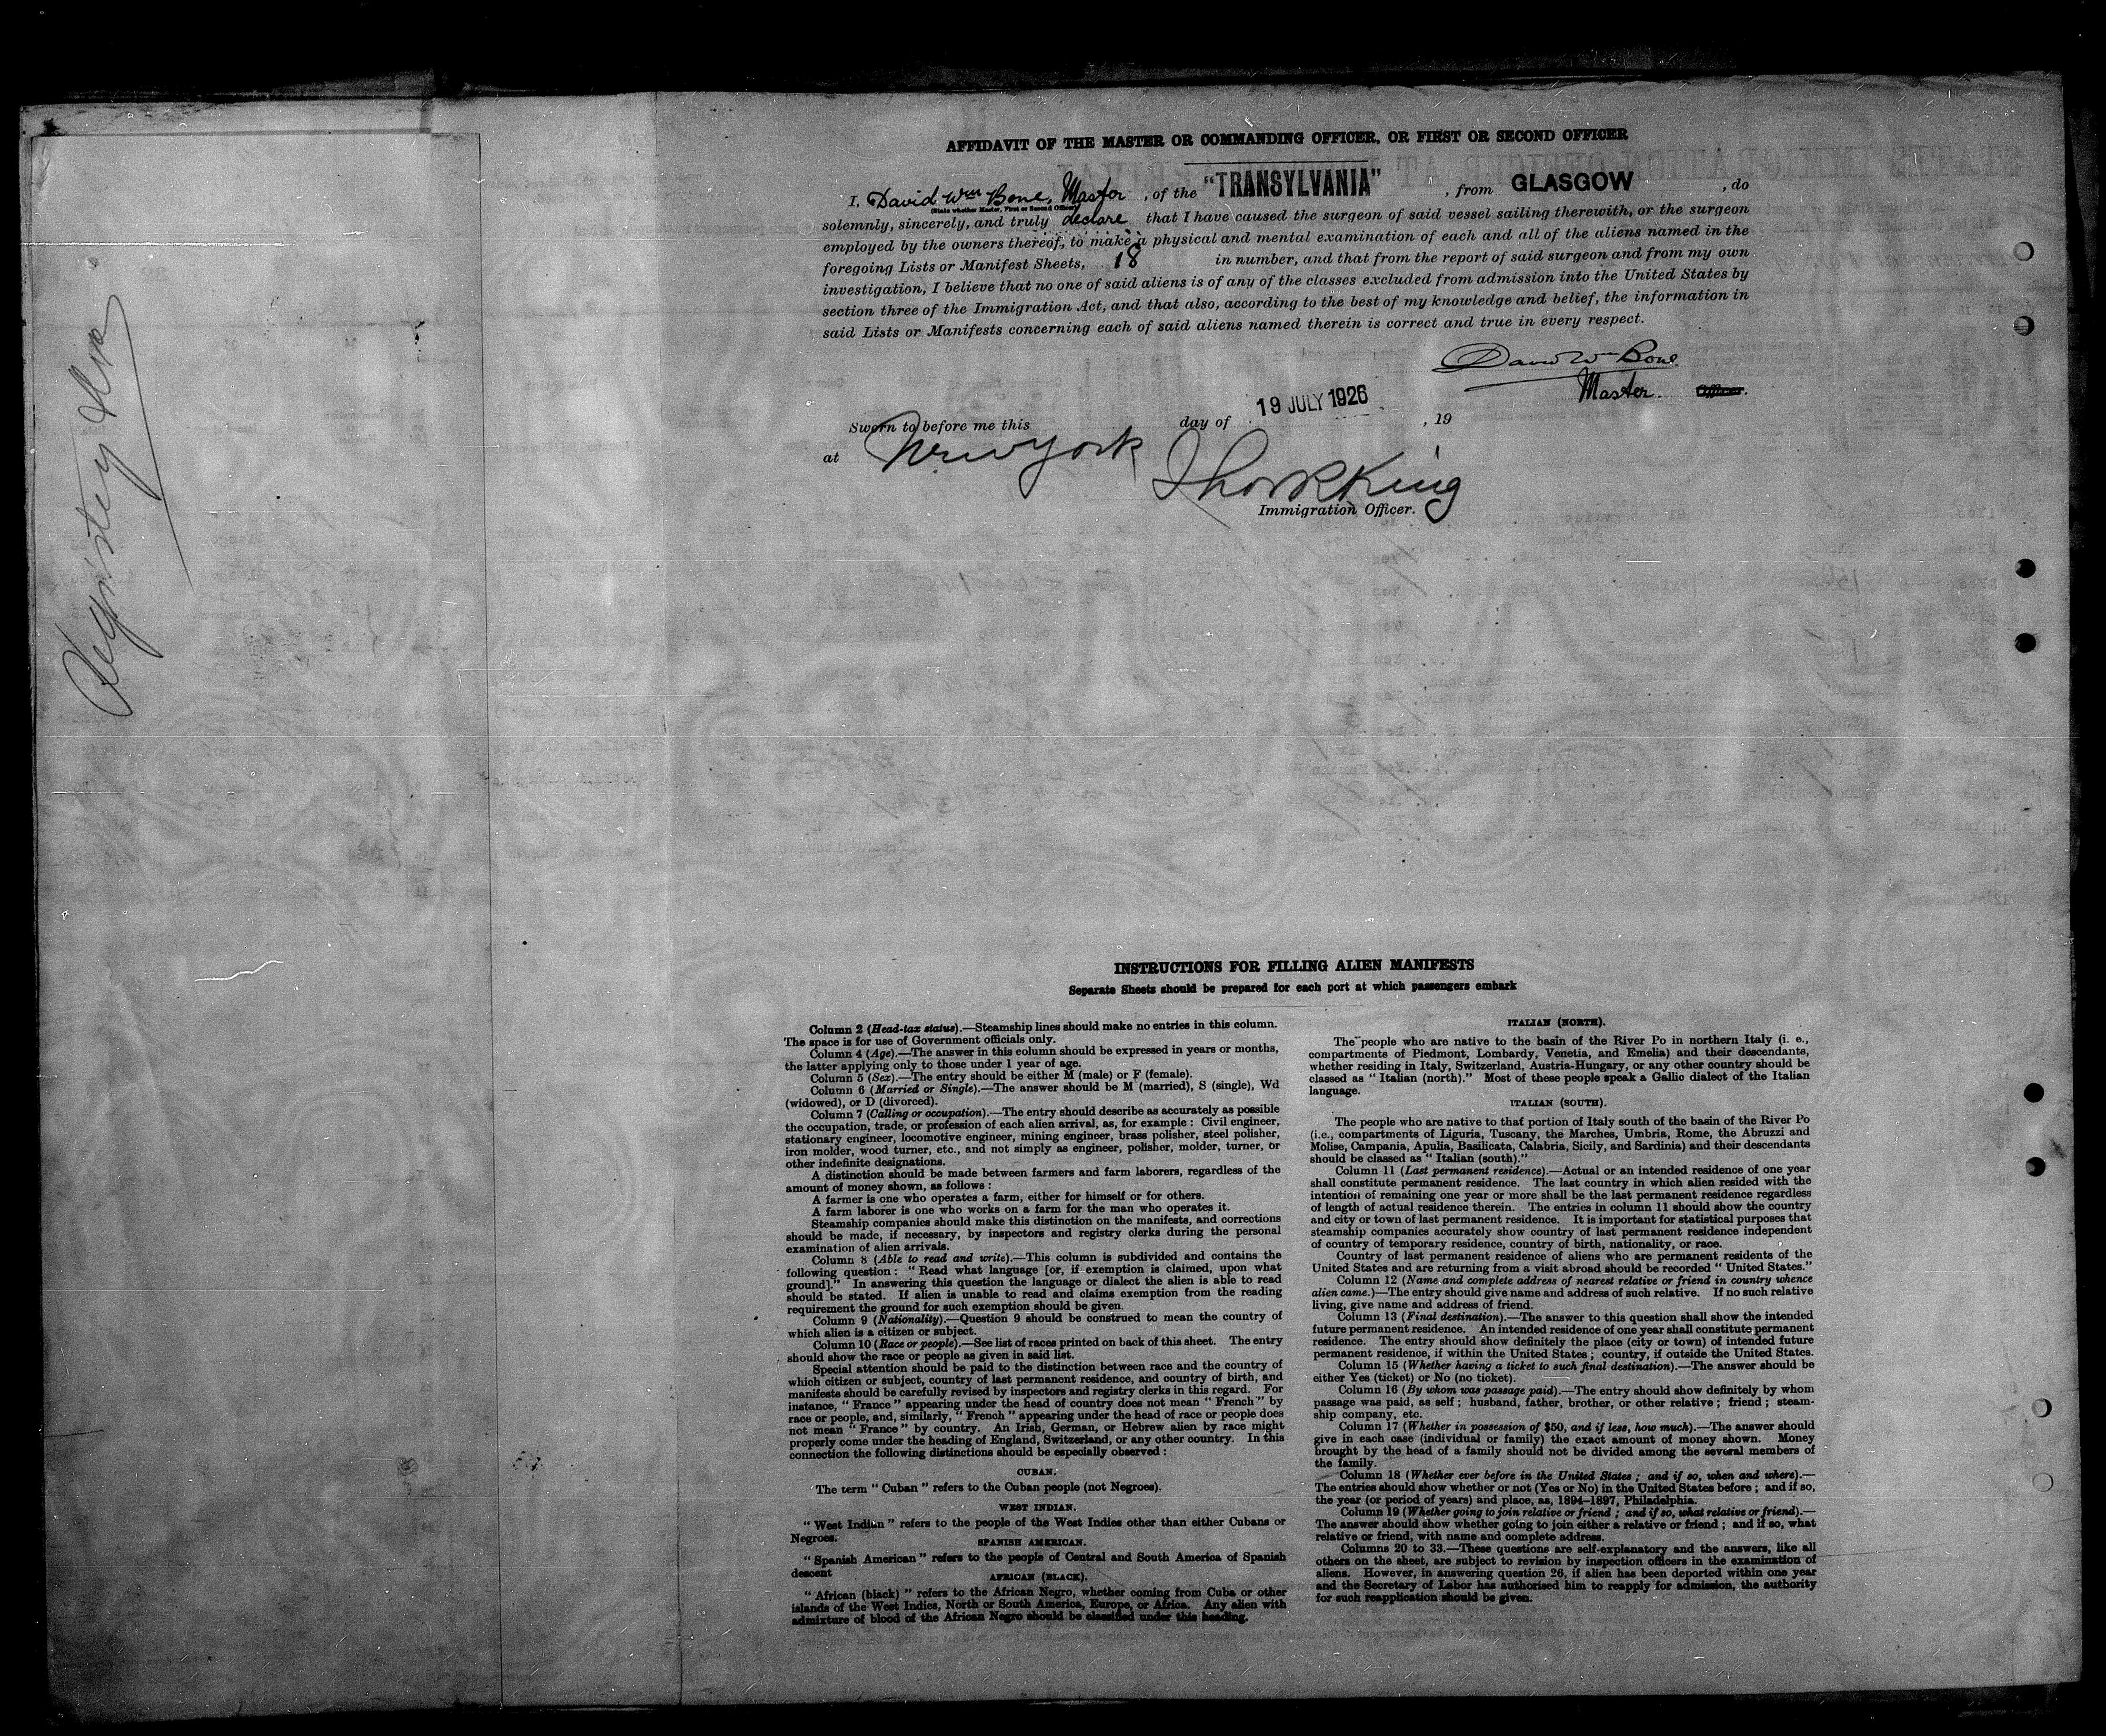 AFFIDAVIT OF THE MASTER OR COMMANDING OFFICER, OR FIRST OR SECOND OFFICER
I, David Wm Bone, Master, of the "TRANSYLVANIA", from GLASGOW, do
(State whether Master, First or Second Officer)
solemnly, sincerely, and truly declare that I have caused the surgeon of said vessel sailing therewith, or the surgeon
employed by the owners thereof, to make a physical and mental examination of each and all of the aliens named in the
foregoing Lists or Manifest Sheets, 18 in number, and that from the report of said surgeon and from my own
investigation, I believe that no one of said aliens is of any of the classes excluded from admission into the United States by
section three of the Immigration Act, and that also, according to the best of my knowledge and belief, the information in
said Lists or Manifests concerning each of said aliens named therein is correct and true in every respect.
David Wm Bone
Master. Officer.
19 JULY 1926
Sworn to before me this day of , 19
at New York
King
Immigration Officer.
Registry
INSTRUCTIONS FOR FILLING ALIEN MANIFESTS
Separate Sheets should be prepared for each port at which passengers embark
Column 2 (Head-tax status).—Steamship lines should make no entries in this column.
The space is for use of Government officials only.
Column 4 (Age).—The answer in this column should be expressed in years or months,
the latter applying only to those under 1 year of age.
Column 5 (Sex).—The entry should be either M (male) or F (female).
Column 6 (Married or Single).—The answer should be M (married), S (single), Wd
(widowed), or D (divorced).
Column 7 (Calling or occupation).—The entry should describe as accurately as possible
the occupation, trade, or profession of each alien arrival, as, for example : Civil engineer,
stationary engineer, locomotive engineer, mining engineer, brass polisher, steel polisher,
iron molder, wood turner, etc., and not simply as engineer, polisher, molder, turner, or
other indefinite designations.
A distinction should be made between farmers and farm laborers, regardless of the
amount of money shown, as follows :
A farmer is one who operates a farm, either for himself or for others.
A farm laborer is one who works on a farm for the man who operates it.
Steamship companies should make this distinction on the manifests, and corrections
should be made, if necessary, by inspectors and registry clerks during the personal
examination of alien arrivals.
Column 8 (Able to read and write).—This column is subdivided and contains the
following question : " Read what language [or, if exemption is claimed, upon what
ground]." In answering this question the language or dialect the alien is able to read
should be stated. If alien is unable to read and claims exemption from the reading
requirement the ground for such exemption should be given.
Column 9 (Nationality).—Question 9 should be construed to mean the country of
which alien is a citizen or subject.
Column 10 (Race or people).—See list of races printed on back of this sheet. The entry
should show the race or people as given in said list.
Special attention should be paid to the distinction between race and the country of
which citizen or subject, country of last permanent residence, and country of birth, and
manifests should be carefully revised by inspectors and registry clerks in this regard. For
instance, " France " appearing under the head of country does not mean " French " by
race or people, and, similarly, " French " appearing under the head of race or people does
not mean " France " by country. An Irish, German, or Hebrew alien by race might
properly come under the heading of England, Switzerland, or any other country. In this
connection the following distinctions should be especially observed :
CUBAN.
The term " Cuban " refers to the Cuban people (not Negroes).
WEST INDIAN.
" West Indian " refers to the people of the West Indies other than either Cubans or
Negroes.
SPANISH AMERICAN.
" Spanish American " refers to the people of Central and South America of Spanish
descent
AFRICAN (BLACK).
" African (black) " refers to the African Negro, whether coming from Cuba or other
islands of the West Indies, North or South America, Europe, or Africa. Any alien with
admixture of blood of the African Negro should be classified under this heading.
ITALIAN (NORTH).
The people who are native to the basin of the River Po in northern Italy (i. e.,
compartments of Piedmont, Lombardy, Venetia, and Emelia) and their descendants,
whether residing in Italy, Switzerland, Austria-Hungary, or any other country should be
classed as " Italian (north)." Most of these people speak a Gallic dialect of the Italian
language.
ITALIAN (SOUTH).
The people who are native to that portion of Italy south of the basin of the River Po
(i.e., compartments of Liguria, Tuscany, the Marches, Umbria, Rome, the Abruzzi and
Molise, Campania, Apulia, Basilicata, Calabria, Sicily, and Sardinia) and their descendants
should be classed as " Italian (south)."
Column 11 (Last permanent residence).—Actual or an intended residence of one year
shall constitute permanent residence. The last country in which alien resided with the
intention of remaining one year or more shall be the last permanent residence regardless
of length of actual residence therein. The entries in column 11 should show the country
and city or town of last permanent residence. It is important for statistical purposes that
steamship companies accurately show country of last permanent residence independent
of country of temporary residence, country of birth, nationality, or race.
Country of last permanent residence of aliens who are permanent residents of the
United States and are returning from a visit abroad should be recorded " United States."
Column 12 (Name and complete address of nearest relative or friend in country whence
alien came.)—The entry should give name and address of such relative. If no such relative
living, give name and address of friend.
Column 13 (Final destination).—The answer to this question shall show the intended
future permanent residence. An intended residence of one year shall constitute permanent
residence. The entry should show definitely the place (city or town) of intended future
permanent residence, if within the United States ; country, if outside the United States.
Column 15 (Whether having a ticket to such final destination).—The answer should be
either Yes (ticket) or No (no ticket).
Column 16 (By whom was passage paid).—The entry should show definitely by whom
passage was paid, as self ; husband, father, brother, or other relative ; friend ; steam-
ship company, etc.
Column 17 (Whether in possession of $50, and if less, how much).—The answer should
give in each case (individual or family) the exact amount of money shown. Money
brought by the head of a family should not be divided among the several members of
the family.
Column 18 (Whether ever before in the United States ; and if so, when and where).—
The entries should show whether or not (Yes or No) in the United States before ; and if so,
the year (or period of years) and place, as, 1894–1897, Philadelphia.
Column 19 (Whether going to join relative or friend ; and if so, what relative or friend).—
The answer should show whether going to join either a relative or friend ; and if so, what
relative or friend, with name and complete address.
Columns 20 to 33.—These questions are self-explanatory and the answers, like all
others on the sheet, are subject to revision by inspection officers in the examination of
aliens. However, in answering question 26, if alien has been deported within one year
and the Secretary of Labor has authorised him to reapply for admission, the authority
for such reapplication should be given.